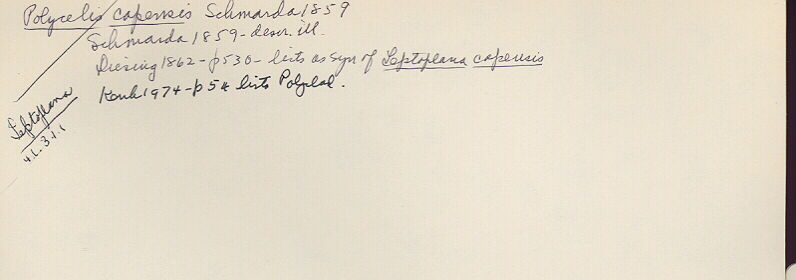 Polycelis capensis Schmarda 1859
Schmarda 1859 - descr. ill.
Diesing 1862 - p530 - lists as syn of Leptoplana capensis
1974 - p54 lists Polyclad.
Leptoplana